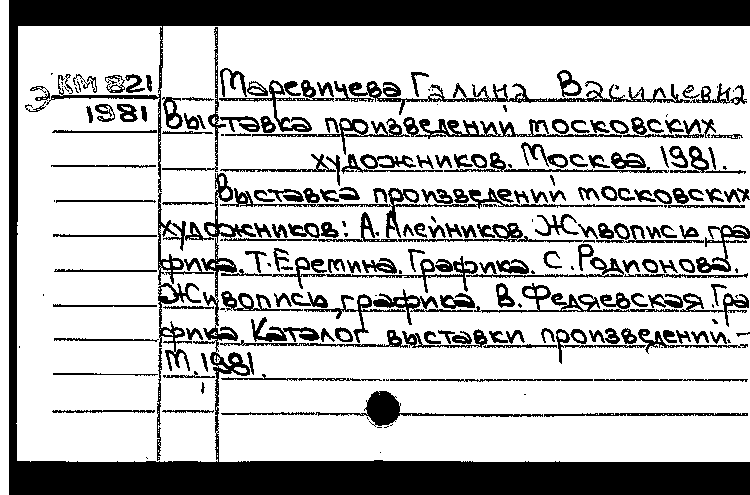 Э КМ 821 Маревичева, Галина Васильевна
1981 Выставка произведений московских
художников. Москва, 1981.
Выставка произведений московских
художников: А. Алейников. Живопись, гра
фика. Т. Еремина. Графика. С. Родионова.
Живопись, графика. В. Федяевская Гра
фика. Каталог выставки произведений –
М., 1981.